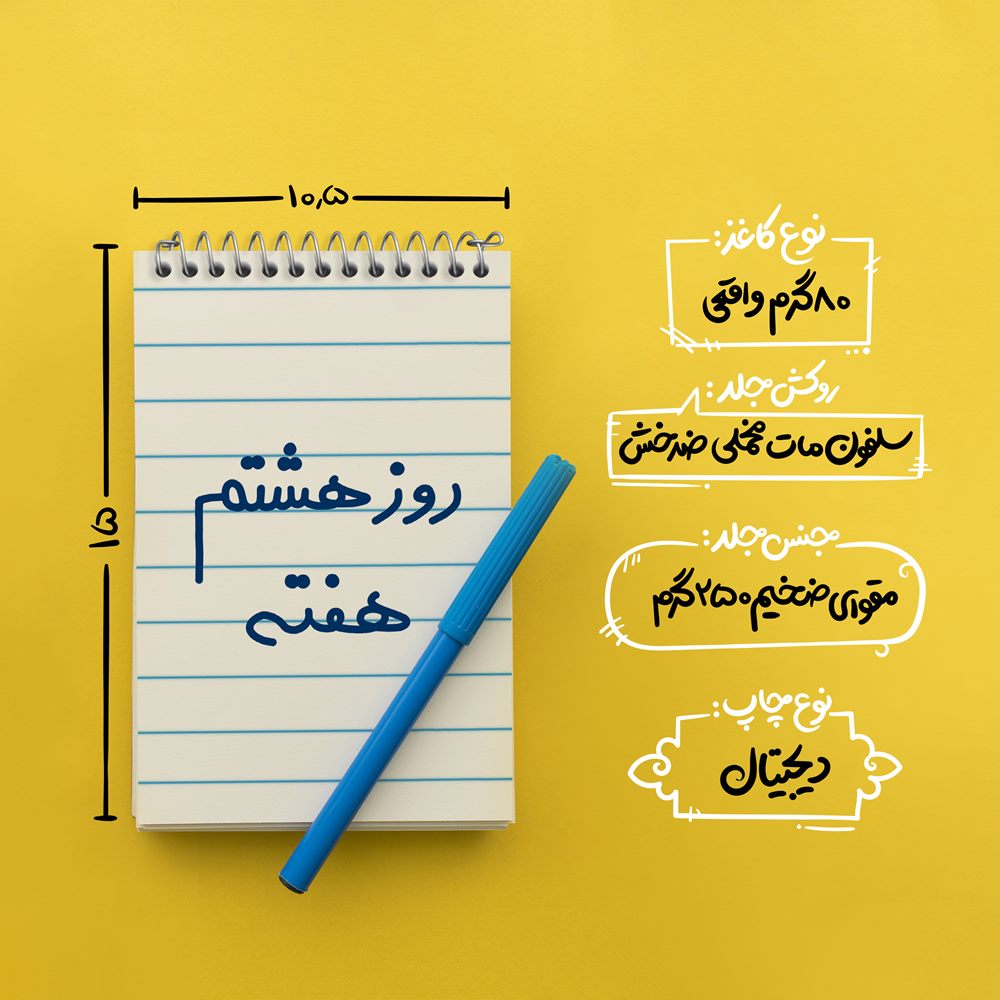 ۱۰,۵
۱۵
روز هشتم
هفته
نوع کاغذ:
۸۰ گرم واقعی
روکش جلد:
سلفون مات مخملی ضدخش
جنس جلد:
مقوای ضخیم ۲۵۰ گرم
نوع چاپ:
دیجیتال